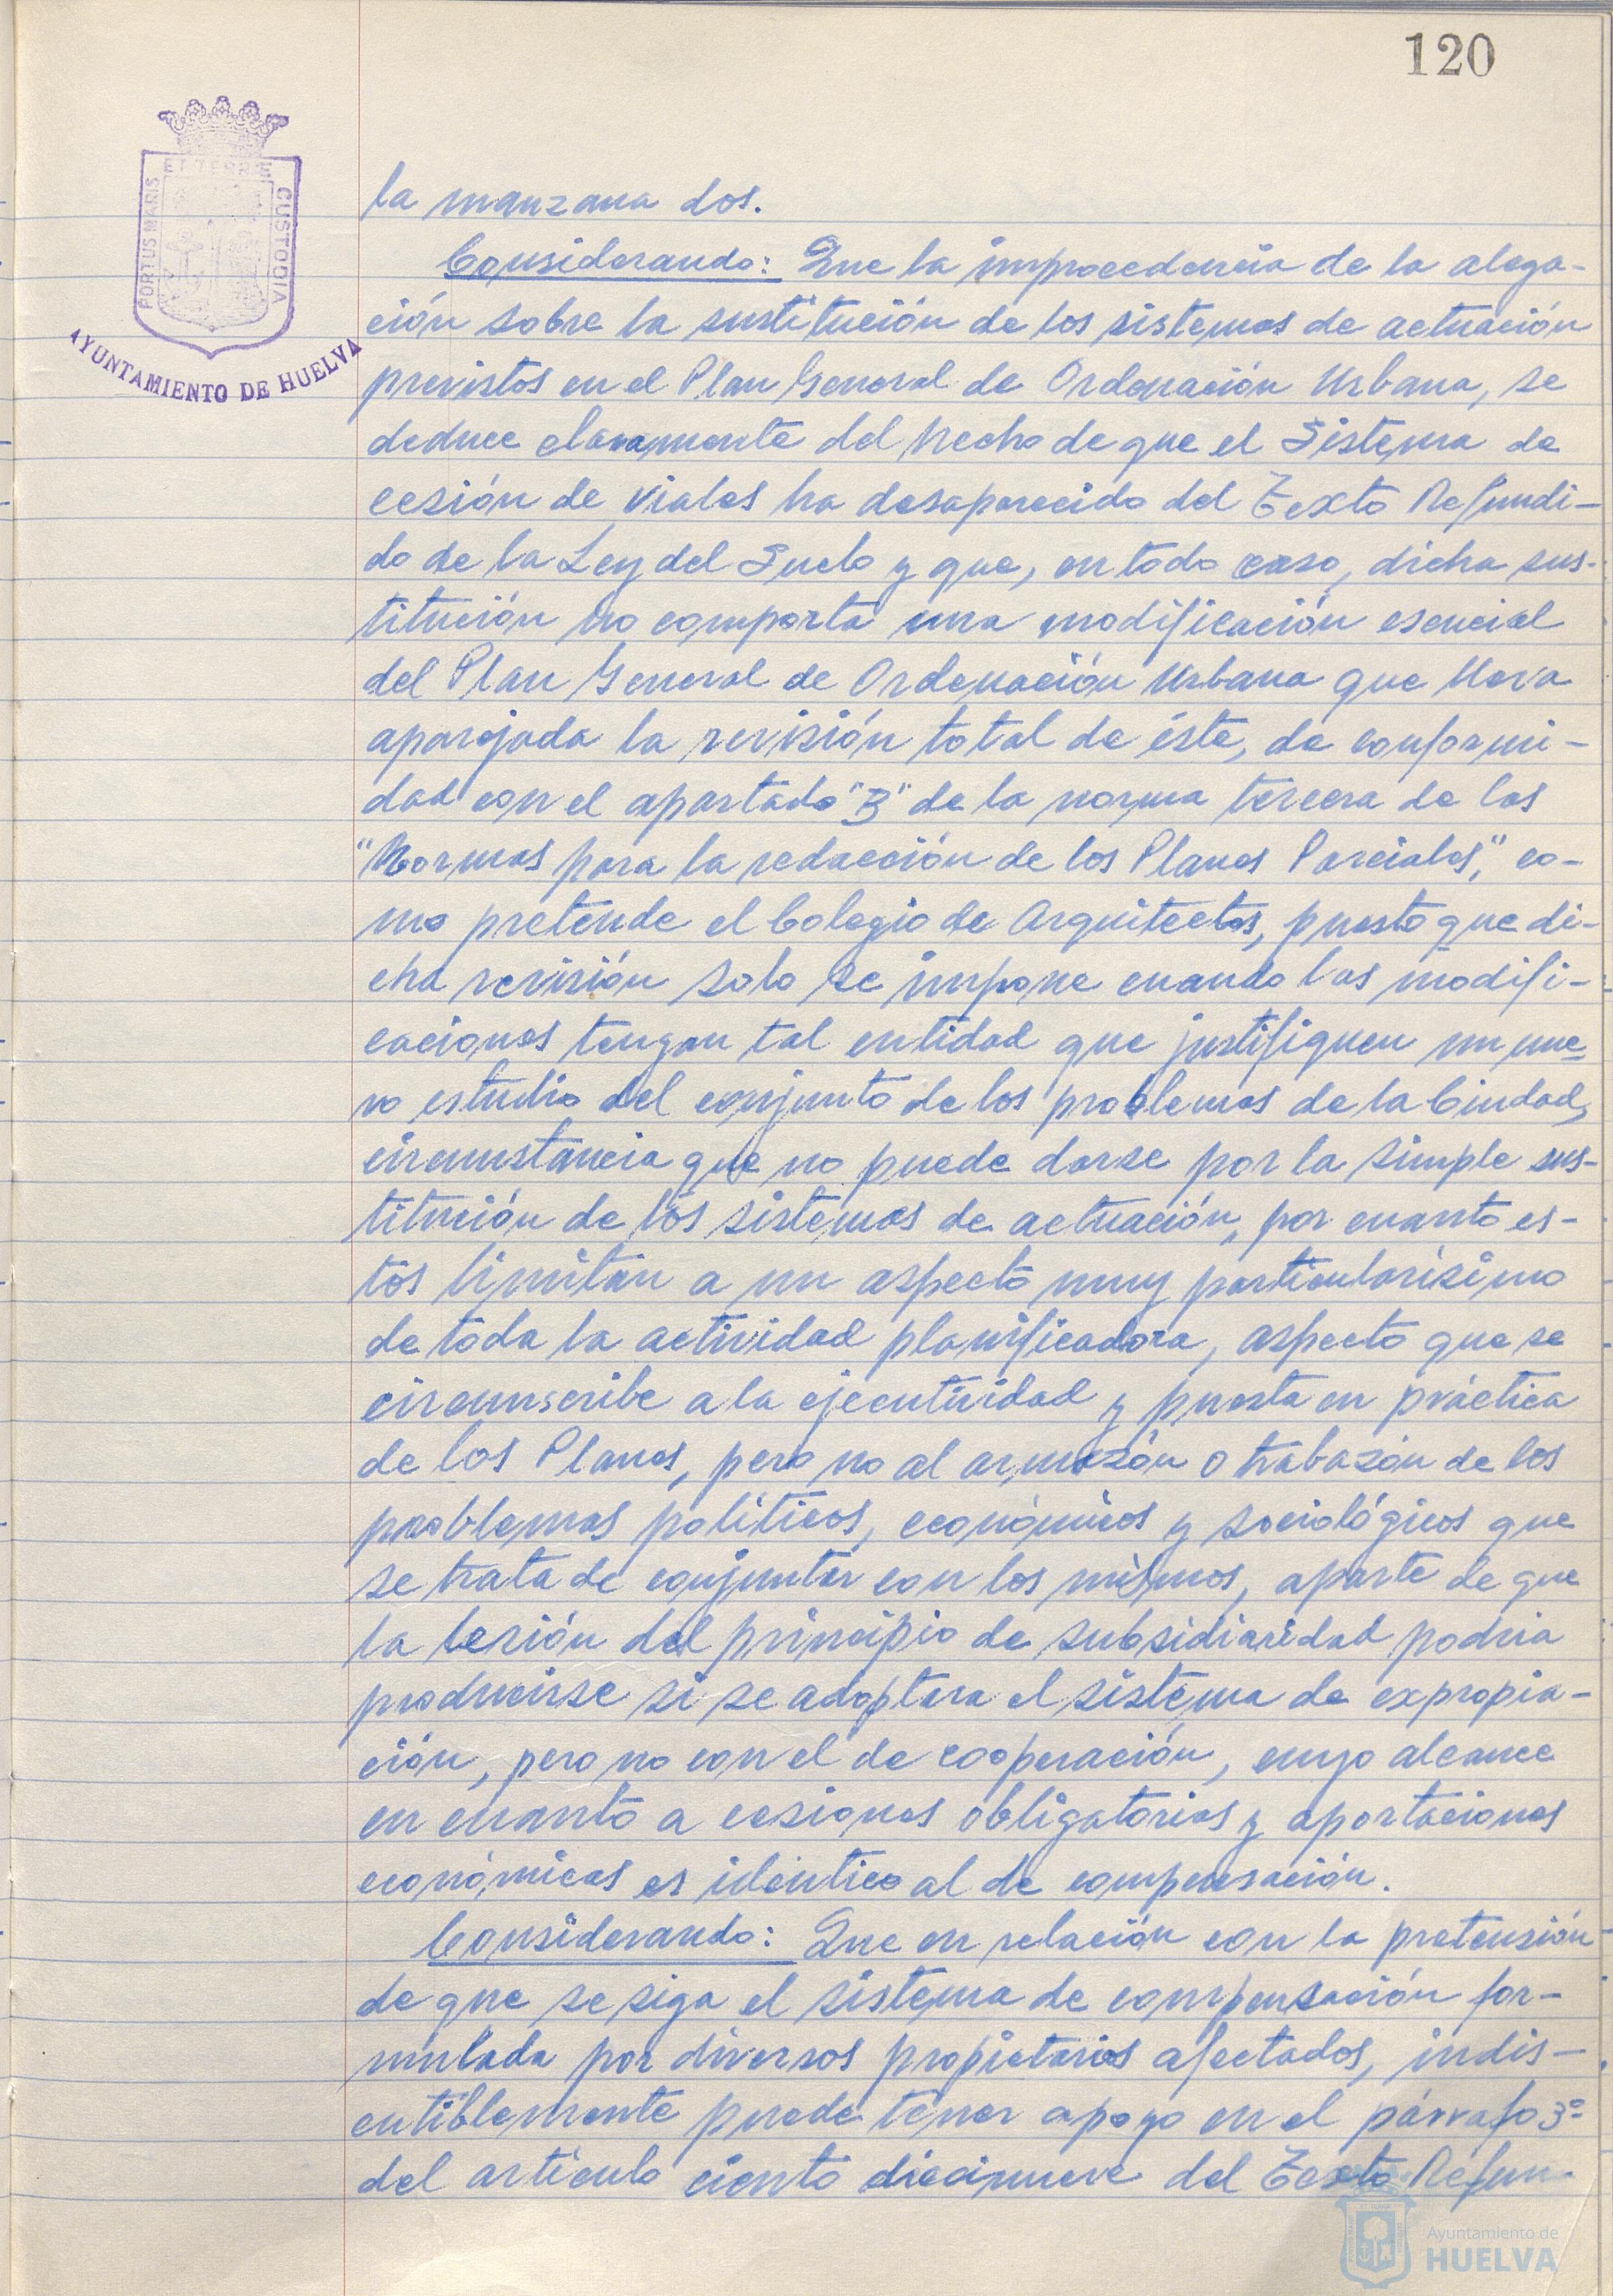 120
ET TERRE
PORTUS MARIS
CUSTODIA
AYUNTAMIENTO DE HUELVA
la manzana dos.
Considerando: Que la improcedencia de la alega-
ción sobre la sustitución de los sistemas de actuación
previstos en el Plan General de Ordenación Urbana, se
deduce claramente del hecho de que el Sistema de
cesión de viales ha desaparecido del Texto Refundi-
do de la Ley del Suelo y que, en todo caso, dicha sus-
titución no comporta una modificación esencial
del Plan General de Ordenación Urbana que lleva
aparejada la revisión total de éste, de conformi-
dad con el apartado "B" de la norma tercera de las
"Normas para la redacción de los Planes Parciales," co-
mo pretende el Colegio de Arquitectos, puesto que di-
cha revisión solo se impone cuando las modifi-
caciones tengan tal entidad que justifiquen un nue-
vo estudio del conjunto de los problemas de la Ciudad,
circunstancia que no puede darse por la simple sus-
titución de los sistemas de actuación, por cuanto es-
tos limitan a un aspecto muy particularísimo
de toda la actividad planificadora, aspecto que se
circunscribe a la ejecutividad y puesta en práctica
de los Planes, pero no al armazón o trabazón de los
problemas políticos, económicos y sociológicos que
se trata de conjuntar con los mismos, aparte de que
la lesión del principio de subsidiaridad podría
producirse si se adoptara el sistema de expropia-
ción, pero no con el de cooperación, cuyo alcance
en cuanto a cesiones obligatorias y aportaciones
económicas es idéntico al de compensación.
Considerando: Que en relación con la pretensión
de que se siga el sistema de compensación for-
mulada por diversos propietarios afectados, indis-
cutiblemente puede tener apoyo en el párrafo 3º
del artículo ciento diecinueve del Texto Refun-
Ayuntamiento de
HUELVA